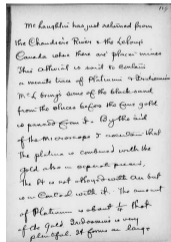 McLaughlin has just returned from
the Chaudiere River & the DeLoup
Canada where there are placer mines
This alluvial is said to contain
a minute trace of Platinum & Iridosmium
McL brings some of the black sand
from the sluices before the coarse gold
is panned from it. By the aid
of the microscope I now see that
the platina is combined with the
gold also in separate pieces,
The Pt is not alloyed with Au but
is in contact with it. The amount
of Platinum is about 1/4 that
of the Gold. Iridosmium is very
plentiful. It forms as large